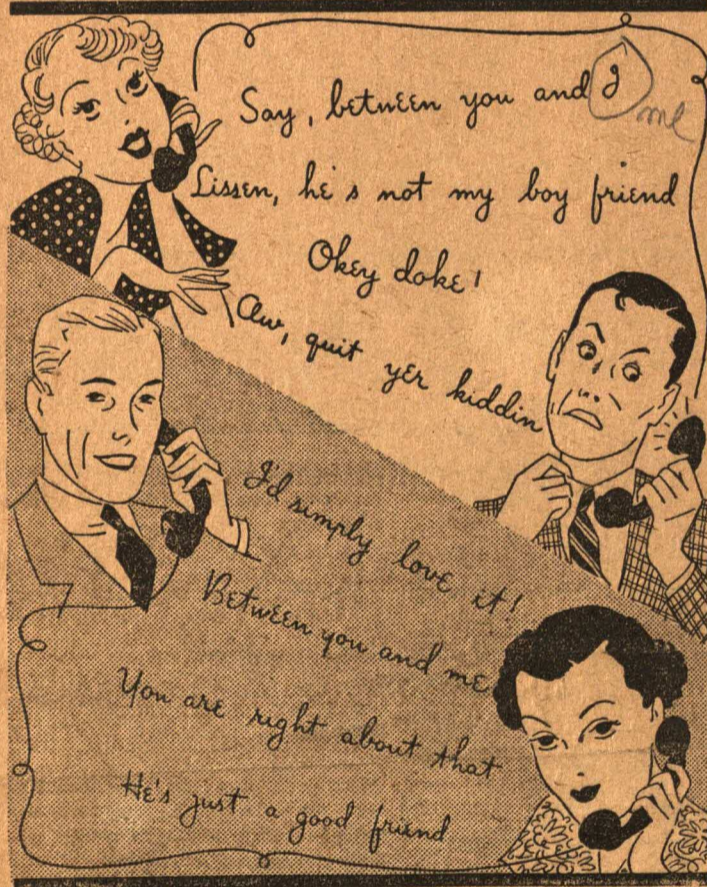 Say, between you and I
me
Lissen, he's not my boy friend
Okey doke!
Aw, quit yer kiddin
I'd simply love it!
Between you and me
You are right about that
He's just a good friend